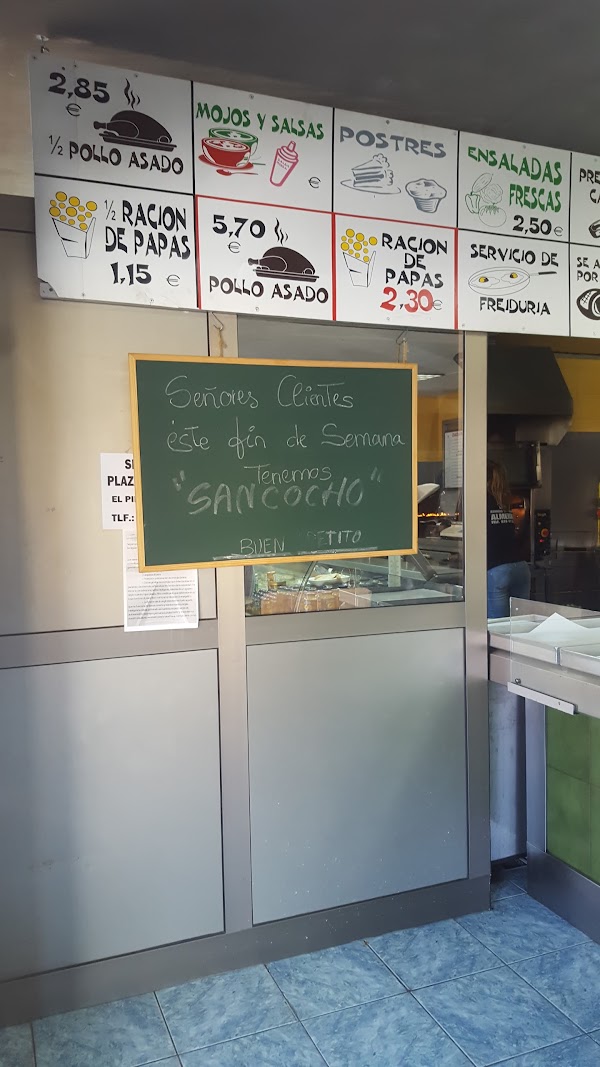 2,85 €
½ POLLO ASADO
MOJOS Y SALSAS
€
POSTRES
ENSALADAS
FRESCAS
2,50€
½ RACION
DE PAPAS
1,15 €
5,70 €
POLLO ASADO
RACION
DE
PAPAS
2,30€
SERVICIO DE
FREIDURIA
SE A
POR
Señores Clientes
éste fin de Semana
Tenemos
"SANCOCHO"
BUEN PETITO
PLAZ
EL PI
TLF.: